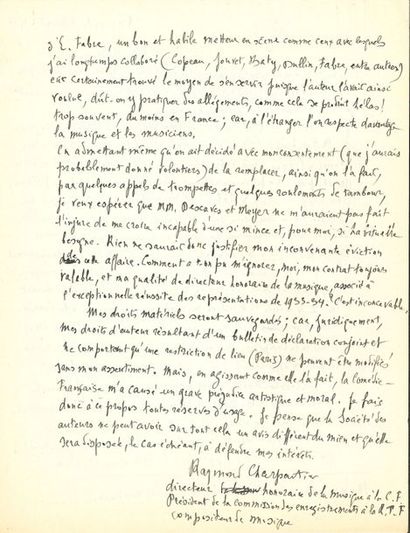 d'É. Fabre, un bon et habile metteur en scène comme ceux avec lesquels
j'ai longtemps collaboré (Copeau, Jouvet, Baty, Dullin, Fabre, entre autres)
eût certainement trouvé le moyen de s'en servir puisque l'auteur l'avait ainsi
voulue, dût-on y pratiquer des allégements, comme cela se produit hélas!
trop souvent, du moins en France; car, à l'étranger l'on respecte davantage
la musique et les musiciens.
En admettant même qu'on ait décidé avec mon consentement (que j'aurais
probablement donné volontiers) de la remplacer, ainsi qu'on l'a fait,
par quelques appels de trompettes et quelques roulements de tambour,
je veux espérer que MM. Descaves et Meyer ne m'auraient pas fait
l'injure de me croire incapable d'une si mince et, pour moi, si habituelle
besogne. Rien ne saurait donc justifier mon inconvenante éviction
affaire. Comment a-t-on pu m'ignorer, moi, mon contrat toujours
valable, et ma qualité de directeur honoraire de la musique, associé à
l'exceptionnelle réussite des représentations de 1933-34. C'est inconcevable.
Mes droits matériels seront sauvegardés; car, juridiquement,
mes droits d'auteur résultant d'un bulletin de déclaration conjoint et
ne comportant qu'une restriction de lieu (Paris) ne peuvent être modifiés
sans mon assentiment. Mais, en agissant comme elle l'a fait, la Comédie-
Française m'a causé un grave préjudice artistique et moral. Je fais
donc à ce propos toutes réserves d'usage. Je pense que la Société des
auteurs ne peut avoir sur tout cela un avis différent du mien et qu'elle
sera disposée, le cas échéant, à défendre mes intérêts.
Raymond Charpentier
directeur honoraire de la musique à la C.F.
Président de la commission des enregistrements à la R.T.F.
compositeur de musique